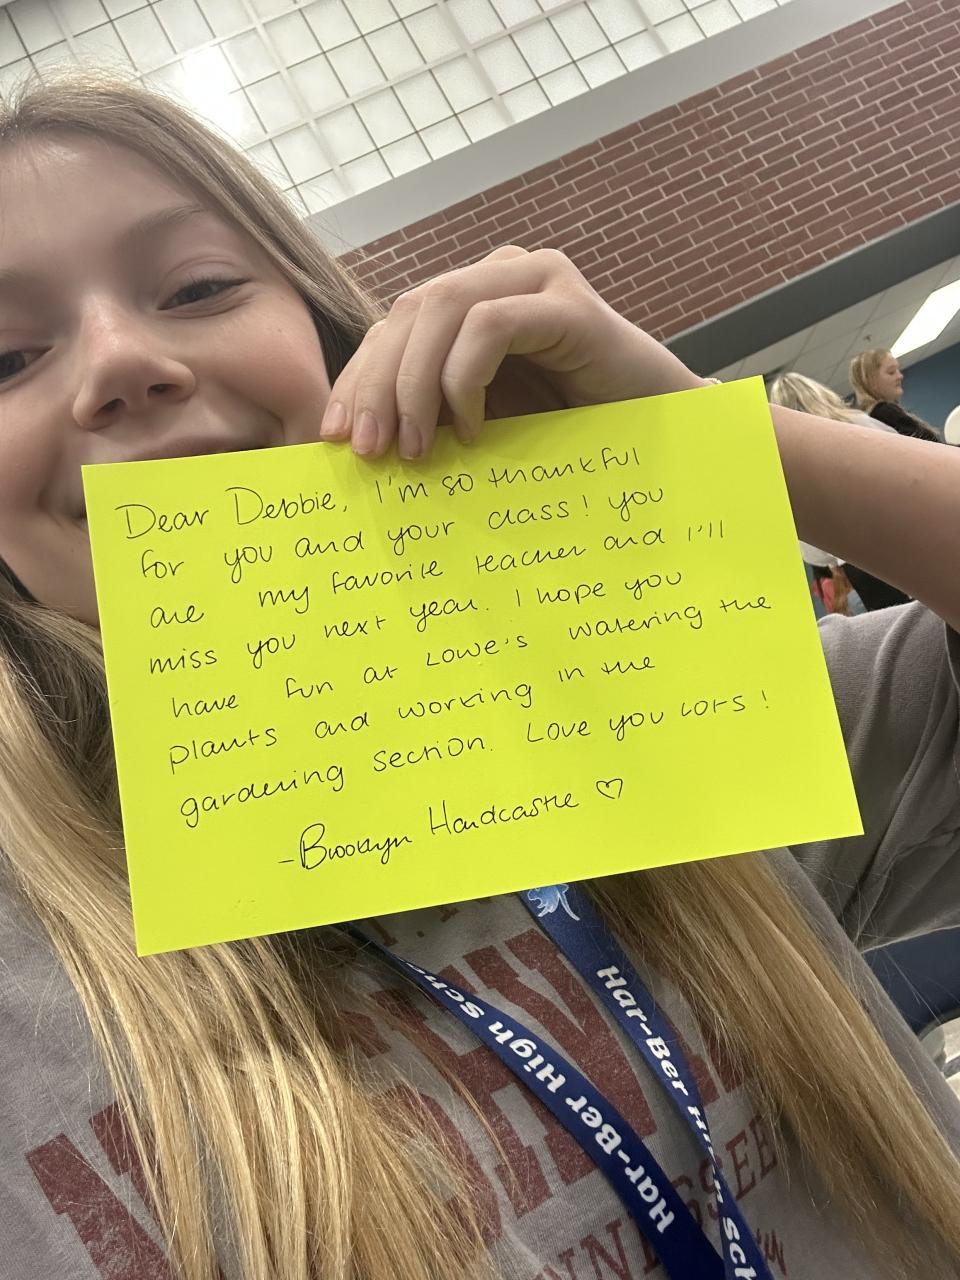 Dear Debbie, I'm so thankful
for you and your class! you
are my favorite teacher and I'll
miss you next year. I hope you
have fun at Lowe's watering the
plants and working in the
gardening section. Love you lots!
-Brooklyn Hardcastle ♡
Har-Ber High Sch
Har-Ber High Sch